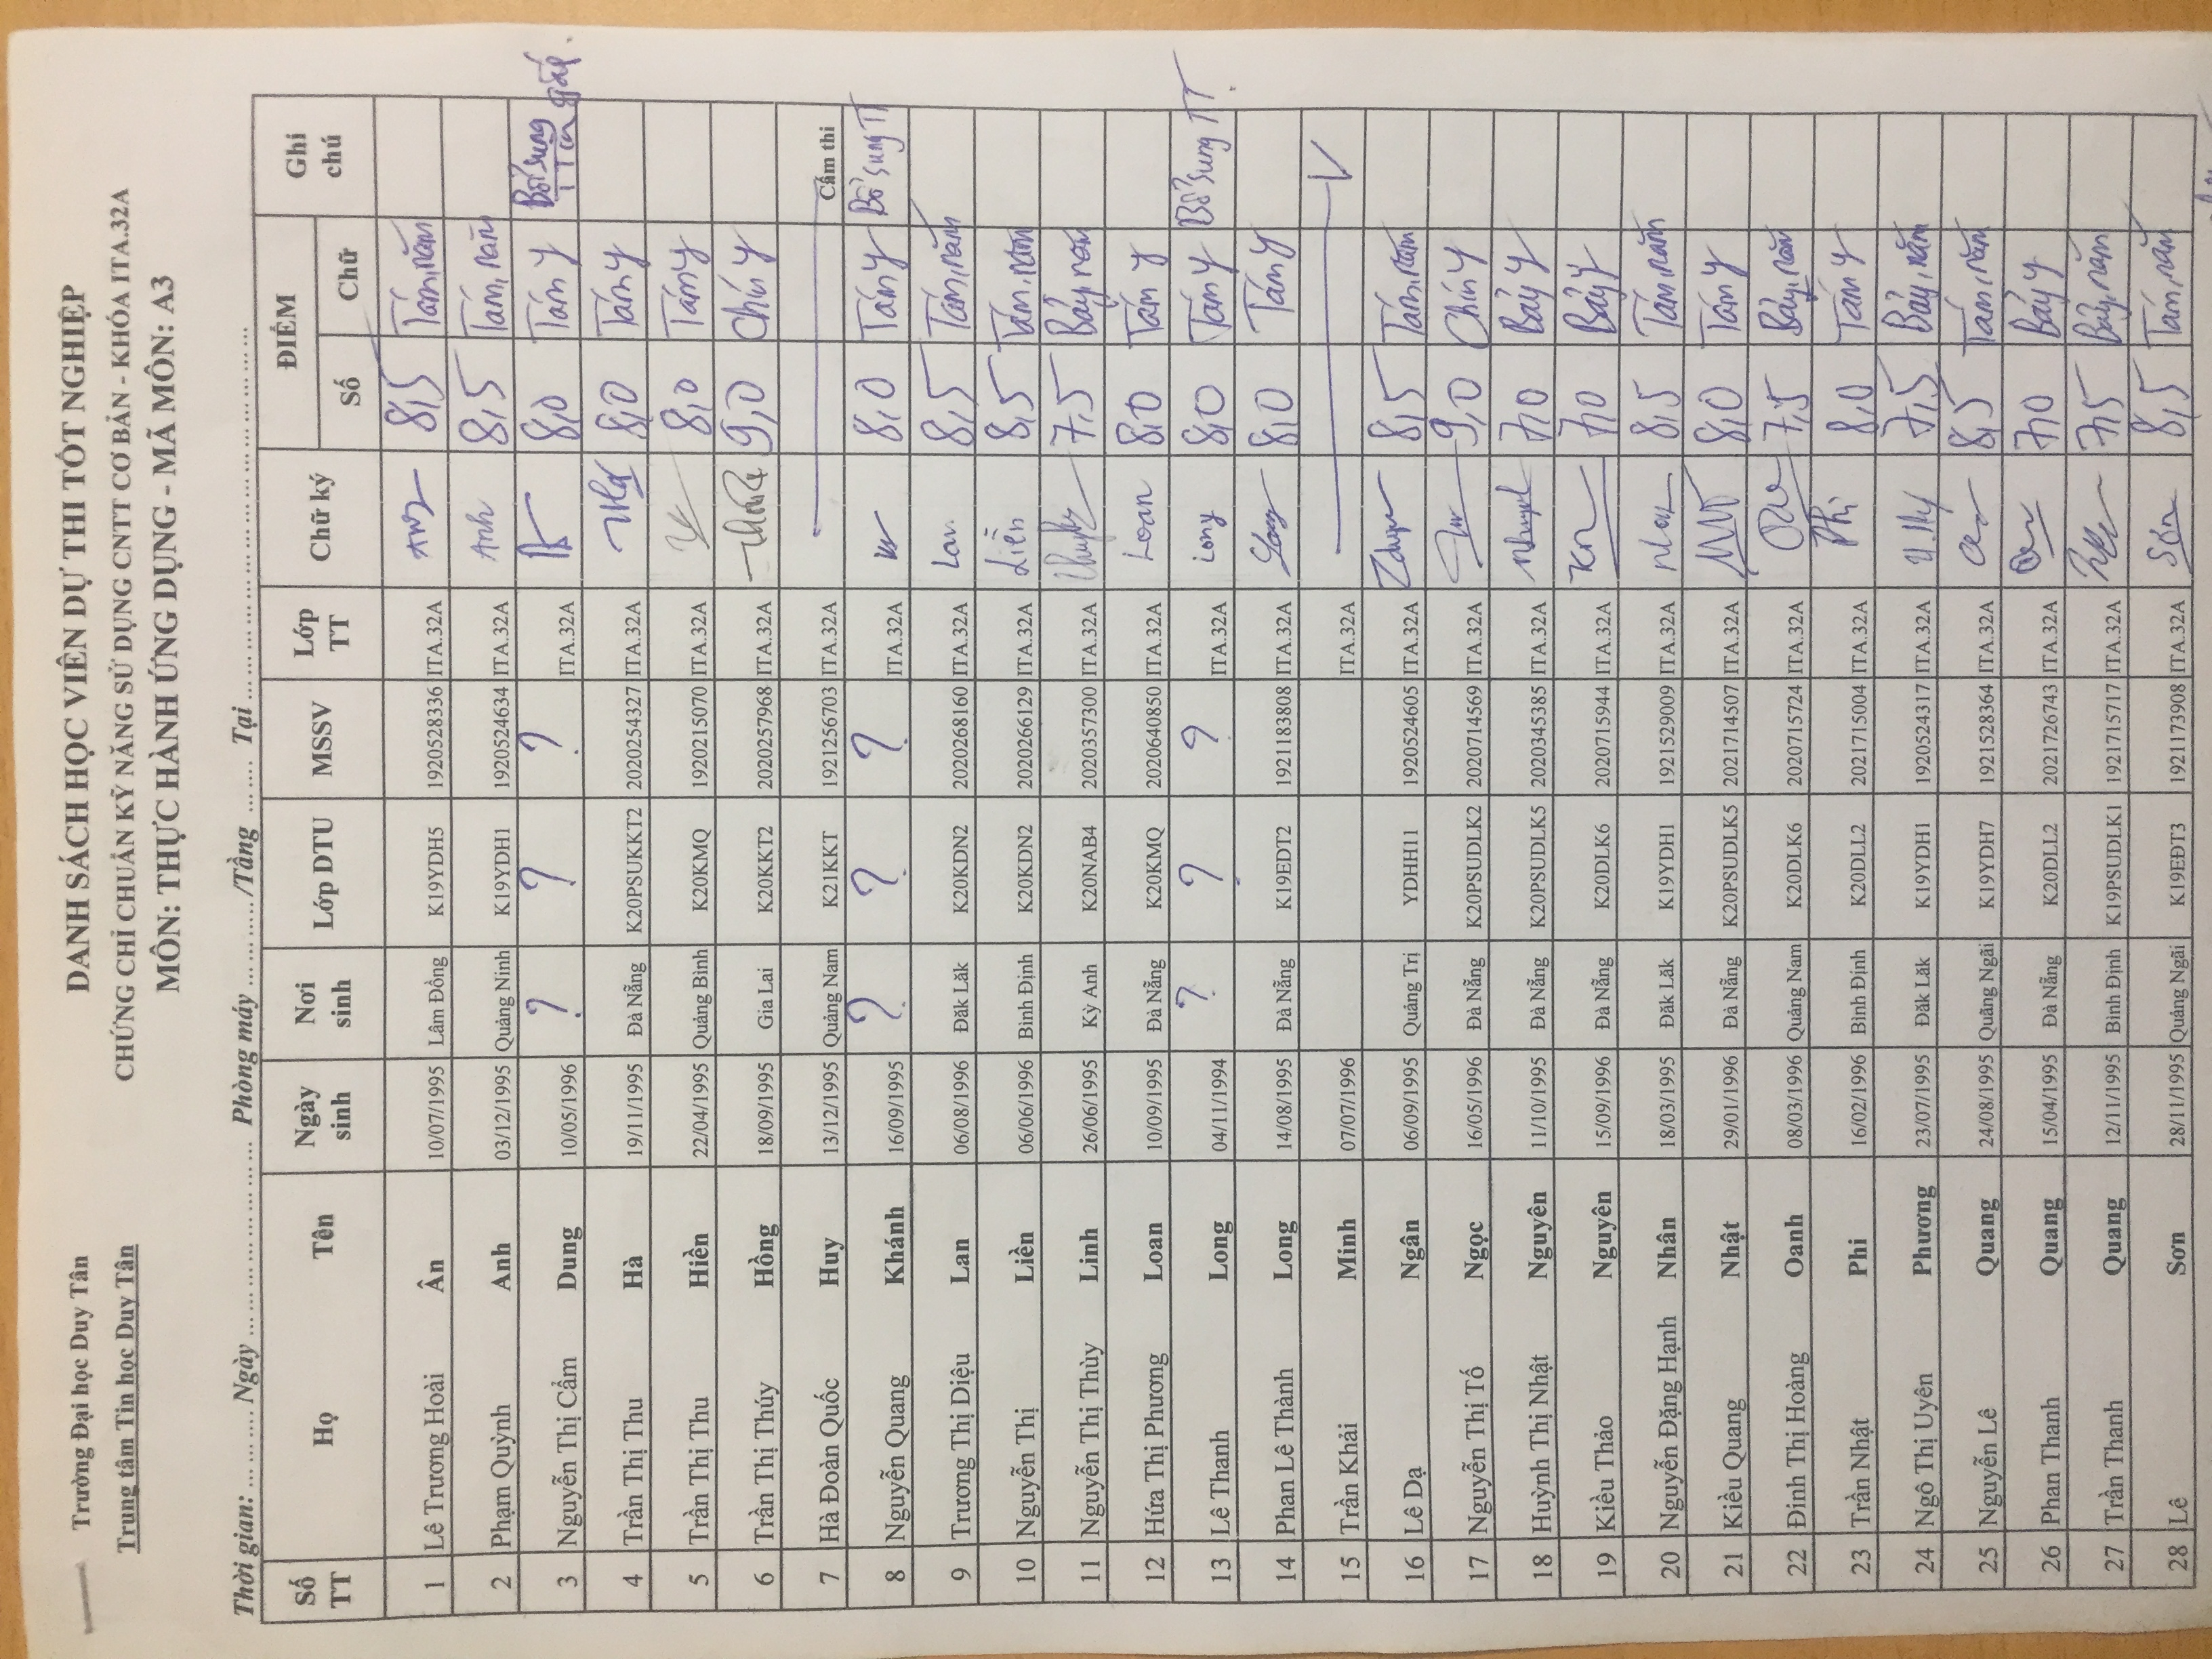 Trường Đại học Duy Tân
Trung tâm Tin học Duy Tân
DANH SÁCH HỌC VIÊN DỰ THI TỐT NGHIỆP
CHỨNG CHỈ CHUẨN KỸ NĂNG SỬ DỤNG CNTT CƠ BẢN - KHÓA ITA.32A
MÔN: THỰC HÀNH ỨNG DỤNG - MÃ MÔN: A3
Thời gian: ............ Ngày ........................ Phòng máy ............/Tầng ...... Tại ........................
Số TT Họ Tên Ngày sinh Nơi sinh Lớp DTU MSSV Lớp TT Chữ ký ĐIỂM Ghi chú
Số Chữ
1 Lê Trương Hoài Ân 10/07/1995 Lâm Đồng K19YDH5 1920528336 ITA.32A 8,5 Tám, năm
2 Phạm Quỳnh Anh 03/12/1995 Quảng Ninh K19YDH1 1920524634 ITA.32A Anh 8,5 Tám, năm
3 Nguyễn Thị Cẩm Dung 10/05/1996 ? ? ? ITA.32A 8,0 Tám y Bổ sung TT gấp.
4 Trần Thị Thu Hà 19/11/1995 Đà Nẵng K20PSUKKT2 2020254327 ITA.32A 8,0 Tám y
5 Trần Thị Thu Hiền 22/04/1995 Quảng Bình K20KMQ 1920215070 ITA.32A 8,0 Tám y
6 Trần Thị Thúy Hồng 18/09/1995 Gia Lai K20KKT2 2020257968 ITA.32A 9,0 Chín y
7 Hà Đoàn Quốc Huy 13/12/1995 Quảng Nam K21KKT 1921256703 ITA.32A Cấm thi
8 Nguyễn Quang Khánh 16/09/1995 ? ? ? ITA.32A 8,0 Tám y Bổ sung TT
9 Trương Thị Diệu Lan 06/08/1996 Đăk Lăk K20KDN2 2020268160 ITA.32A Lan 8,5 Tám, năm
10 Nguyễn Thị Liền 06/06/1996 Bình Định K20KDN2 2020266129 ITA.32A Liền 8,5 Tám, năm
11 Nguyễn Thị Thùy Linh 26/06/1995 Kỳ Anh K20NAB4 2020357300 ITA.32A 7,5 Bảy, năm
12 Hứa Thị Phương Loan 10/09/1995 Đà Nẵng K20KMQ 2020640850 ITA.32A Loan 8,0 Tám y
13 Lê Thanh Long 04/11/1994 ? ? ? ITA.32A Long 8,0 Tám y Bổ sung TT.
14 Phan Lê Thành Long 14/08/1995 Đà Nẵng K19EDT2 1921183808 ITA.32A Long 8,0 Tám y
15 Trần Khải Minh 07/07/1996 ITA.32A V
16 Lê Dạ Ngân 06/09/1995 Quảng Trị YDHH11 1920524605 ITA.32A 8,5 Tám, năm
17 Nguyễn Thị Tố Ngọc 16/05/1996 Đà Nẵng K20PSUDLK2 2020714569 ITA.32A 9,0 Chín y
18 Huỳnh Thị Nhật Nguyên 11/10/1995 Đà Nẵng K20PSUDLK5 2020345385 ITA.32A 7,0 Bảy y
19 Kiều Thảo Nguyên 15/09/1996 Đà Nẵng K20DLK6 2020715944 ITA.32A 7,0 Bảy y
20 Nguyễn Đặng Hạnh Nhân 18/03/1995 Đăk Lăk K19YDH1 1921529009 ITA.32A 8,5 Tám, năm
21 Kiều Quang Nhật 29/01/1996 Đà Nẵng K20PSUDLK5 2021714507 ITA.32A 8,0 Tám y
22 Đinh Thị Hoàng Oanh 08/03/1996 Quảng Nam K20DLK6 2020715724 ITA.32A 7,5 Bảy, năm
23 Trần Nhật Phi 16/02/1996 Bình Định K20DLL2 2021715004 ITA.32A Phi 8,0 Tám y
24 Ngô Thị Uyên Phương 23/07/1995 Đăk Lăk K19YDH1 1920524317 ITA.32A 7,5 Bảy, năm
25 Nguyễn Lê Quang 24/08/1995 Quãng Ngãi K19YDH7 1921528364 ITA.32A 8,5 Tám, năm
26 Phan Thanh Quang 15/04/1995 Đà Nẵng K20DLL2 2021726743 ITA.32A 7,0 Bảy y
27 Trần Thanh Quang 12/11/1995 Bình Định K19PSUDLK1 1921715717 ITA.32A 7,5 Bảy, năm
28 Lê Sơn 28/11/1995 Quảng Ngãi K19EĐT3 1921173908 ITA.32A Sơn 8,5 Tám, năm